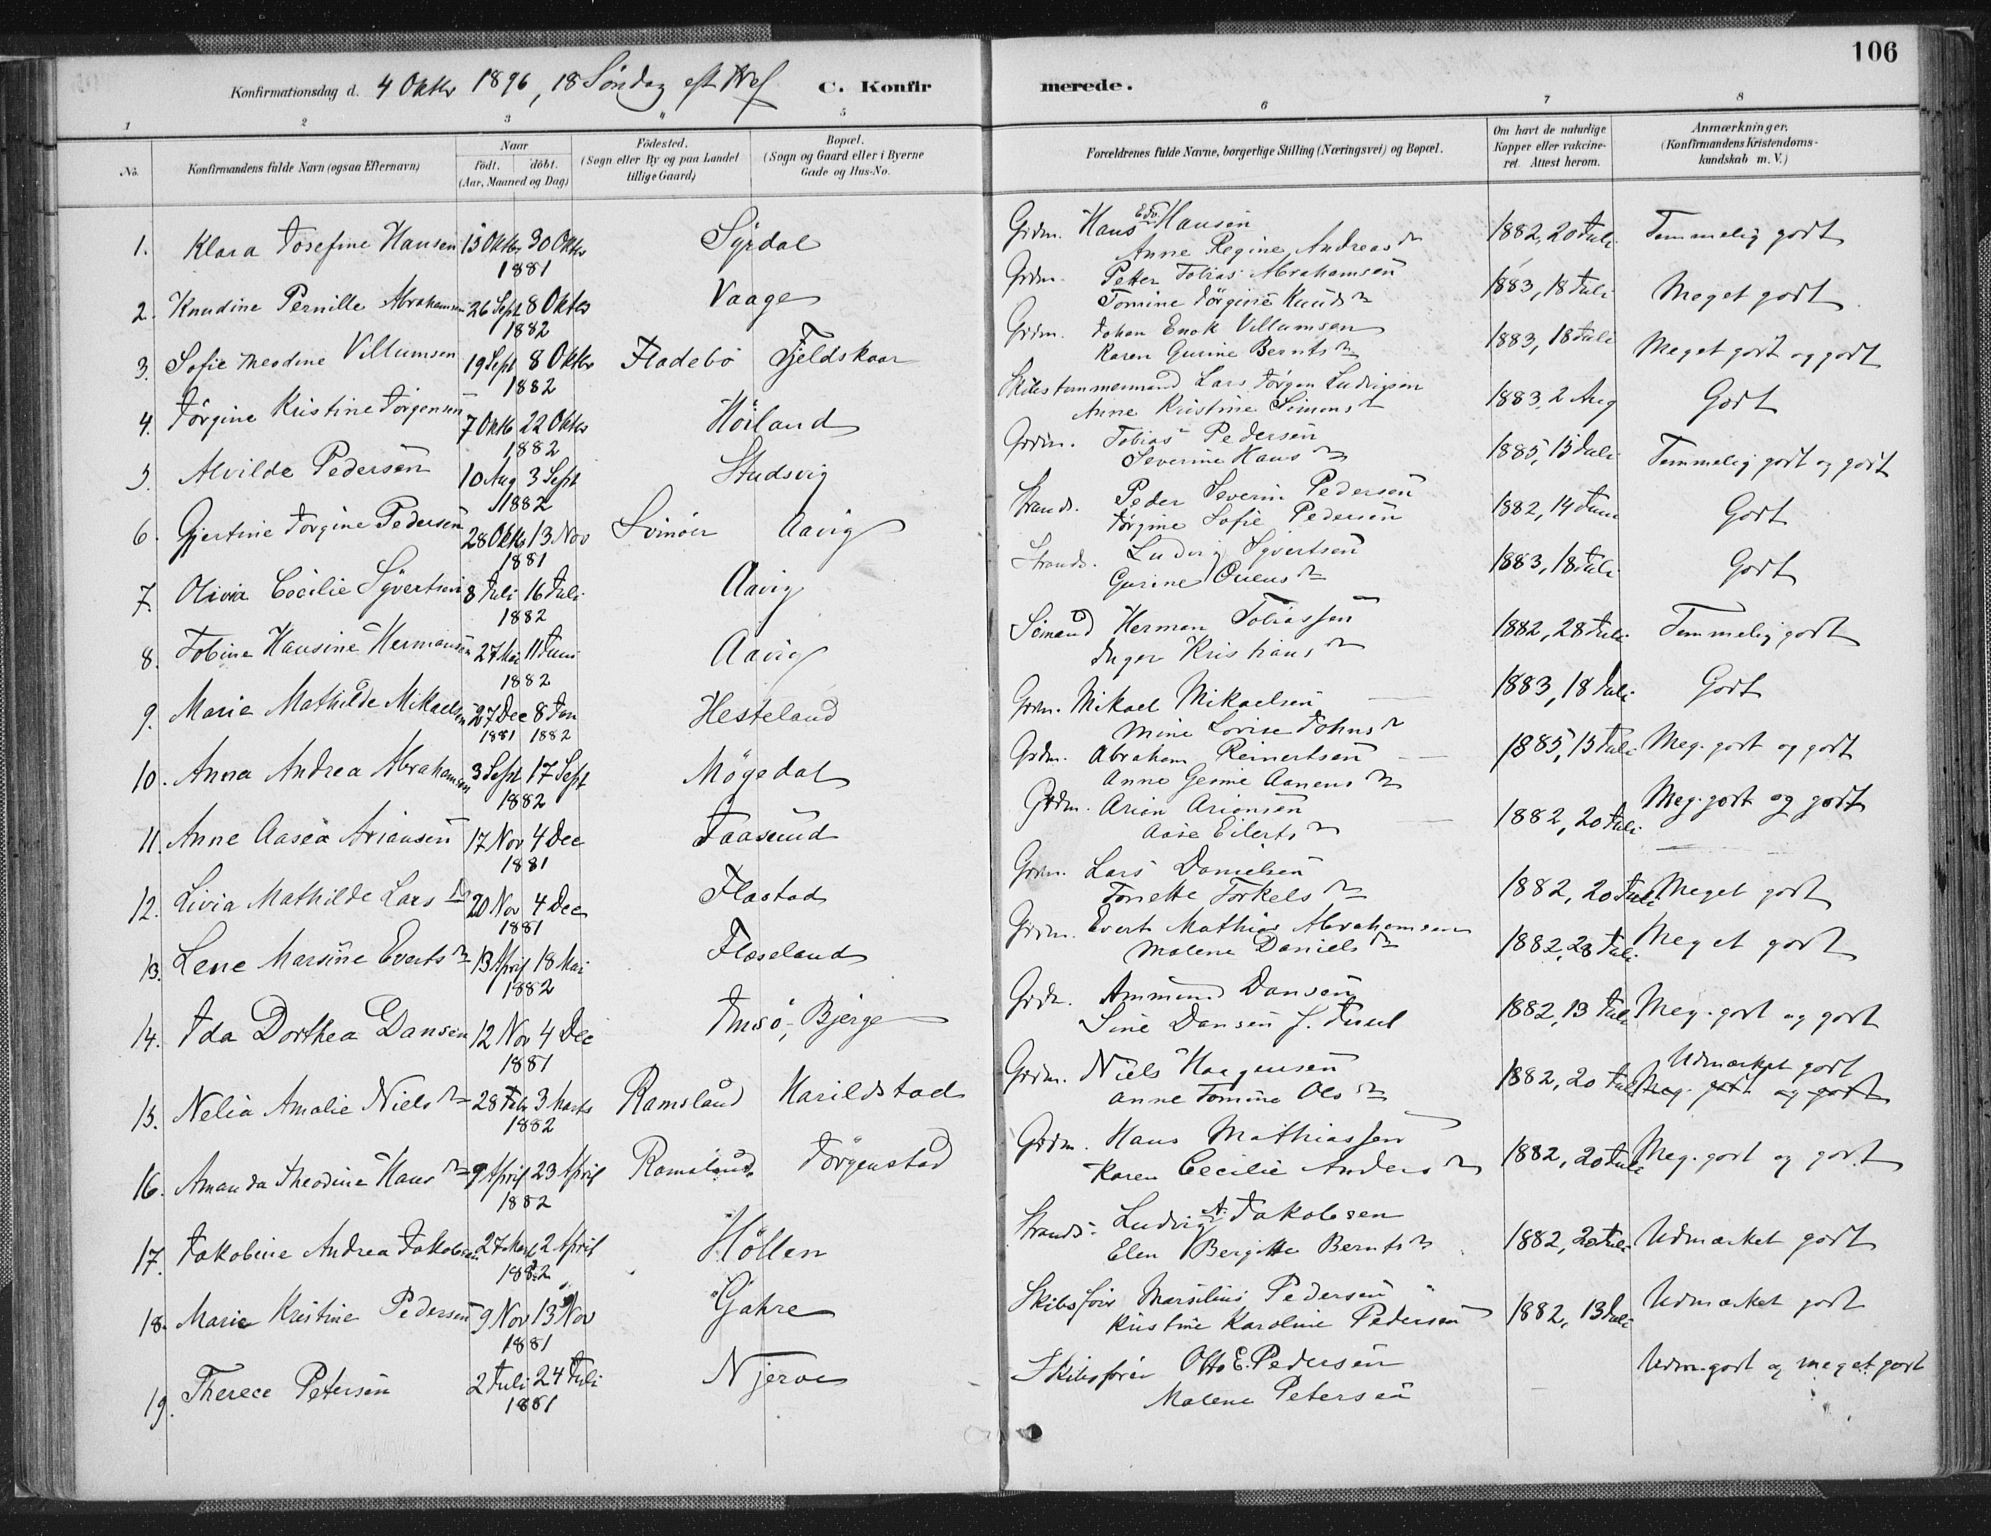 106
Konfirmationsdag d. 4 Oktbr 1896, 18 Söndag eft Tref. C. Konfirmerede.
1 2 3 " 5 6 7 8
No. Konfirmandens fulde Navn (ogsaa Efternavn) Naar födt. döbt. (Aar, Maaned og Dag) Födested. (Sogn eller By og paa Landet tillige Gaard) Bopæl. (Sogn og Gaard eller i Byerne Gade og Hus-No. Forældrenes fulde Navne, borgerlige Stilling (Næringsvei) og Bopæl. Om havt de naturlige Kopper eller vakcineret. Attest herom. Anmærkninger. (Konfirmandens Kristendomskundskab m. V.)
1. Klara Josefine Hansen 15 Oktbr 30 Oktbr 1881 Syrdal Grdm. Hans Edv. Hansen 1882, 20 Juli Temmelig godt
Anne Regine Andreasdr
2. Knudine Pernille Abrahamsen 26 Sept 8 Oktbr 1882 Vaage Grdm. Petter Tobias Abrahamsen 1883, 18 Juli Meget godt
Tomine Jörgine Knudsdr
3. Sofie Theodine Villumsen 19 Sept 8 Oktbr 1882 Fladebö Fjeldskaar Grdm. Johan Enok Villumsen 1883, 18 Juli Meget godt og godt
Karen Gurine Berntsdr
4. Jörgine Kristine Jörgensen 7 Oktb 22 Oktbr 1882 Höiland Skibstømmermand Lars Jörgen Ludvigsen 1883, 2 Aug Godt
Anne Kristine Simonsdr
5. Alvilde Pedersen 10 Aug 3 Sept 1882 Studsvig Grdm. Tobias Pedersen 1885, 15 Juli Temmelig godt og godt
Severine Hansdr
6. Gjertine Jörgine Pedersen 28 Oktb 13 Nov 1881 Svinöer Aavig Strands. Peder Severin Pedersen 1882, 14 Juni Godt
Jörgine Sofie Pedersen
7. Olivia Cecilie Syvertsen 8 Juli 16 Juli 1882 Aavig Strands. Ludvig Syvertsen 1883, 18 Juli Godt
Gurine
8. Tobine Hansine Hermansen 27 Mai 11 Juni 1882 Aavig Sömand Herman Tobiassen 1882, 28 Juli Temmelig godt
Inger Kristiansdr
9. Marie Mathilde Mikaelsen 27 Dec 1881 8 Jan 1882 Hesteland Grdm. Mikael Mikaelsen 1883, 18 Juli Godt
Mine Lovise Johnsdr
10. Anna Andrea Abrahamsen 3 Sept 17 Sept 1882 Mögedal Grdm. Abraham Reinertsen 1885, 15 Juli Meg. godt og godt
Anne Gesine Aanensdr
11. Anne Aasea Ariansen 17 Nov 4 Dec 1881 Faasund Grdm. Arian Ariansen 1882, 20 Juli Meg. godt og godt
Aase Eilertsdr
12. Livia Mathilde Larsdr 20 Nov 4 Dec 1881 Flastad Grdm. Lars Danielsen 1882, 20 Juli Meget godt
Tonette Torkelsdr
13. Lene Marsine Evertsdr 13 April 18 Mai 1882 Flaseland Grdm. Evert Mathias Abrahamsen 1882, 28 Juli Meget godt
Malene Danielsdr
14. Ida Dorthea Dansen 12 Nov 4 Dec 1881 Imsö, Bjerge Grdm. Ammund Dansen 1882, 13 Juli Meg. godt og godt
Sine Dansen f. Juul
15. Nelia Amalie Nielsdr 28 Febr 3 Marts 1882 Ramsland Harildstad Grdm. Niels Haagensen 1882, 20 Juli Udmærket godt
Meg. godt og godt
Anne Tomine Olsdr
16. Amanda Theodine Hansdr 9 April 23 April 1882 Ramsland Jörgenstad Grdm. Hans Mathiassen 1882, 20 Juli Meg. godt og godt
Karen Cecilie Andersdr
17. Jakobine Andrea Jakobsen 27 Mart 2 April 1882 Höllen Strands. Ludvig A. Jakobsen 1882, 20 Juli Udmærket godt
Elen Bergitte Berntsdr
18. Marie Kristine Pedersen 9 Nov 13 Nov 1881 Gahre Skibsför. Marsilius Pedersen 1882, 13 Juli Udmærket godt
Kristine Karoline Pedersen
19. Therece Petersen 2 Juli 24 Juli 1881 Njerve Skibsförer Otto E. Pedersen Udm. godt og meget godt
Malene Petersen